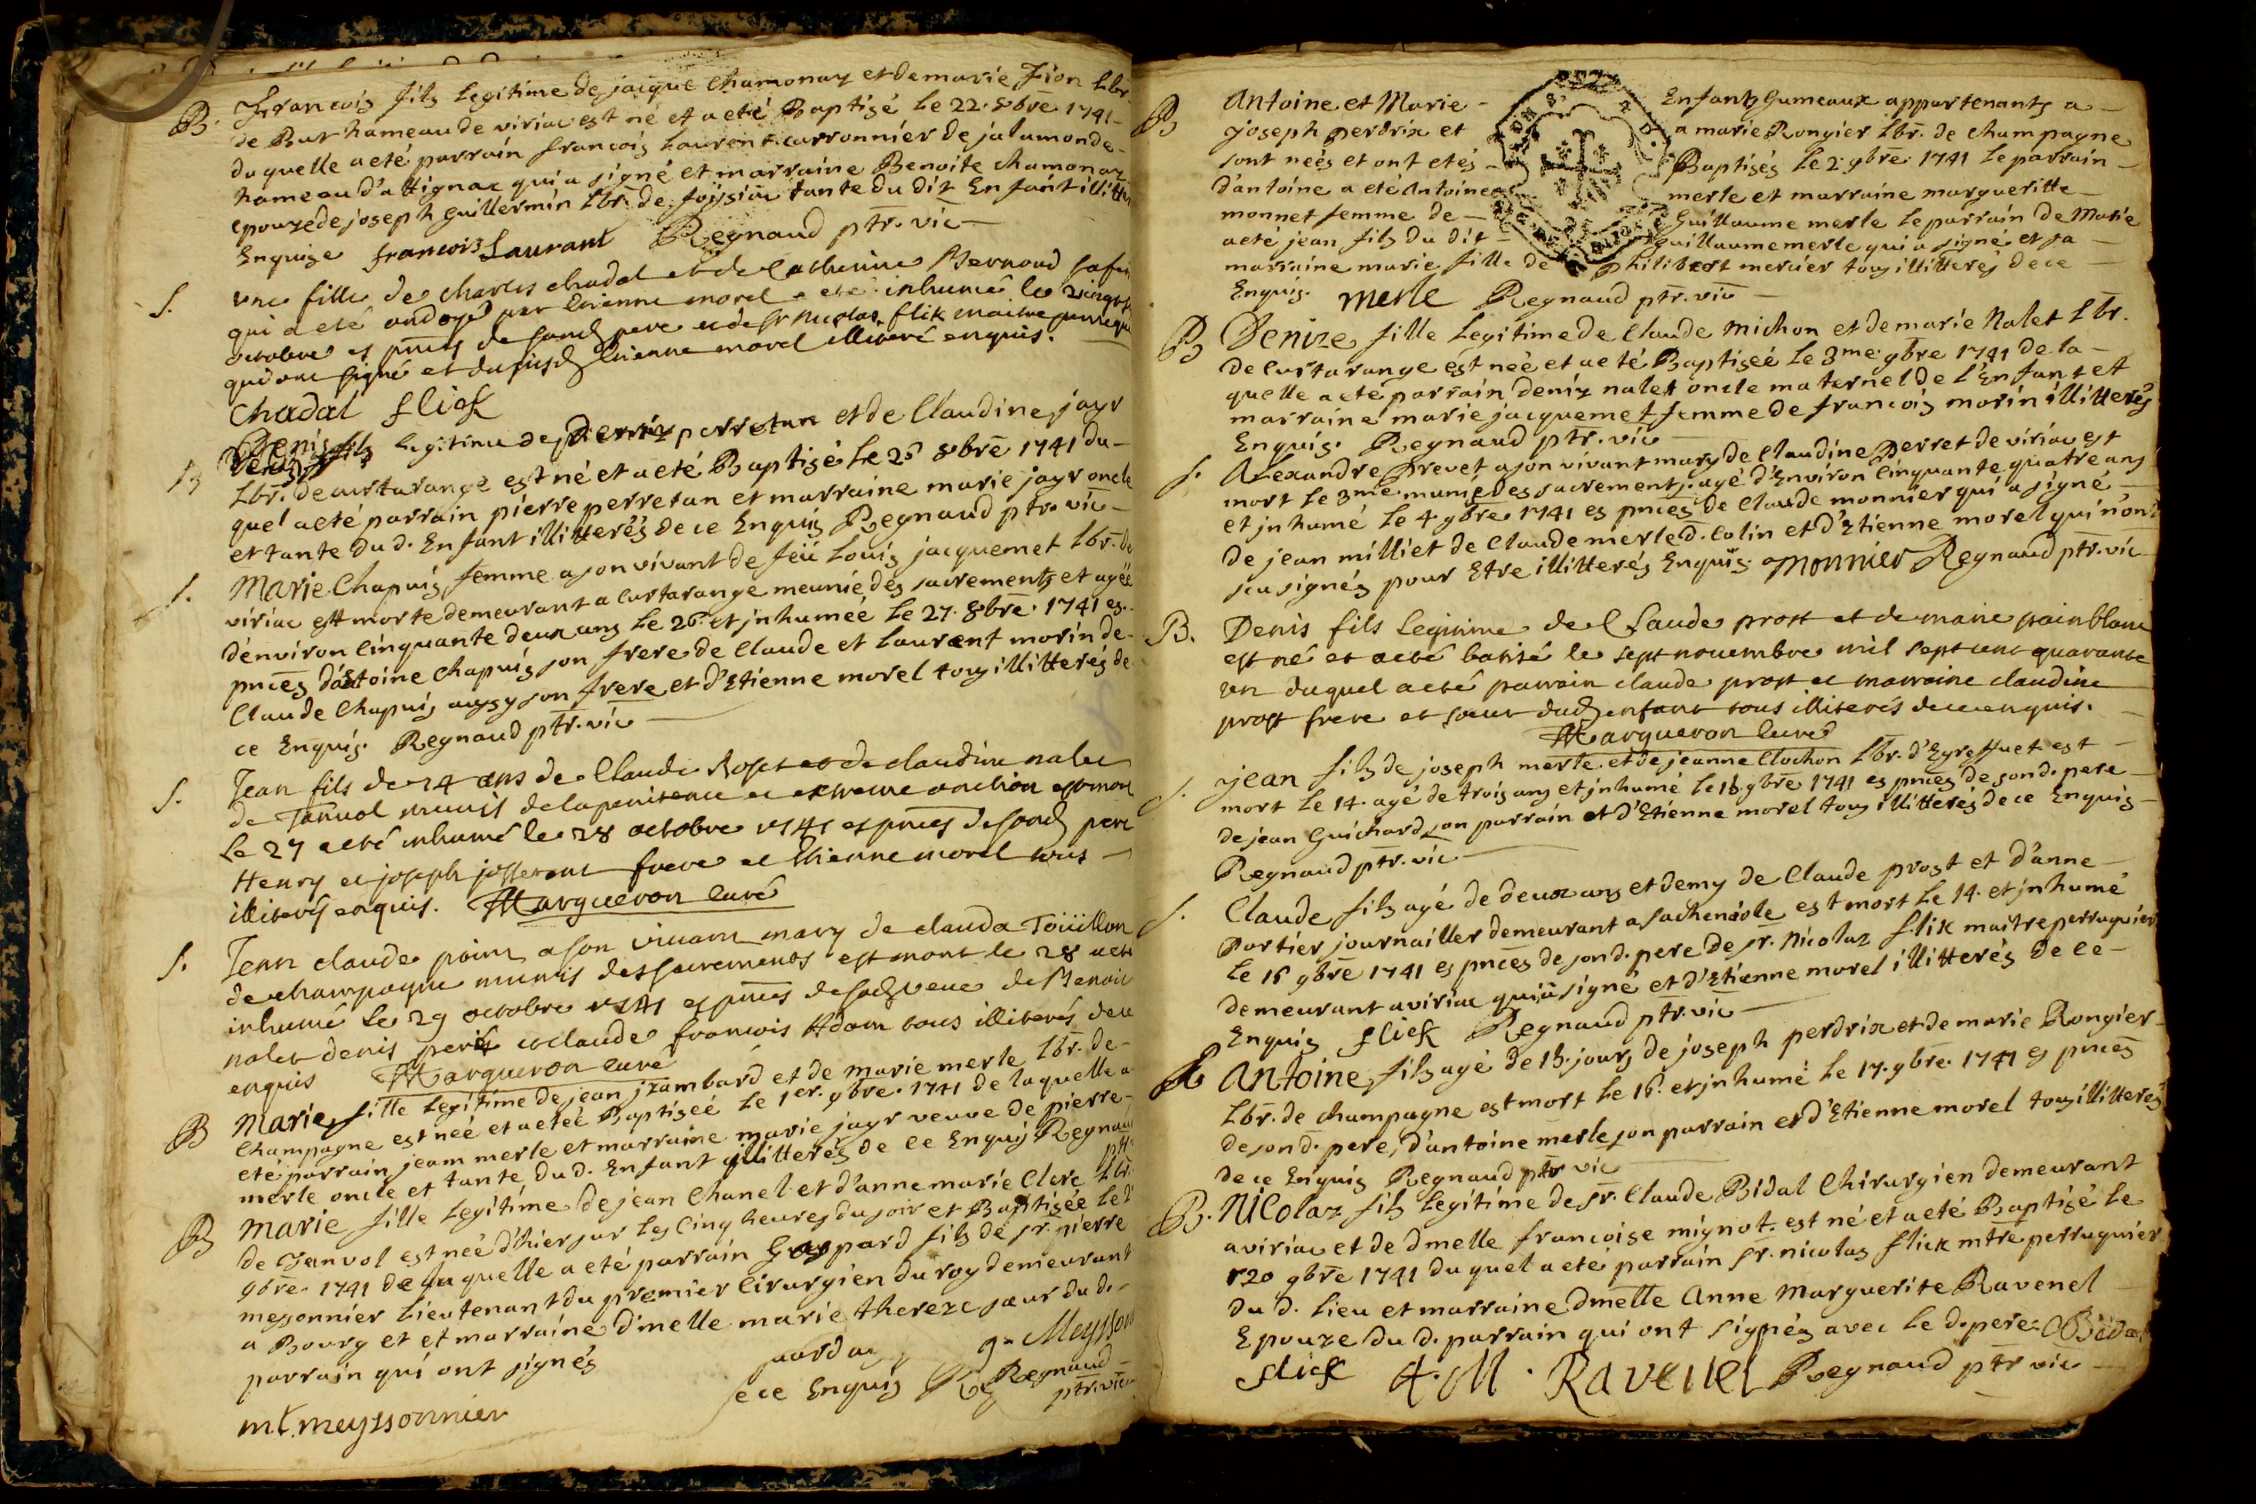 B. Francois fils legitime de jaique Chamonay et de marie Fion Lbr.
de But hameau de viriac est né et a eté Baptisé le 22. 8bre 1741
du quelle a eté parrain francois Laurent carronnier de jalamonde
hameau d'attignac qui a signé et marraine Benoite chamonay
epouze de joseph Guillermin Lbr. de foissiac tante du dit Enfant illitt
Enquise francois Laurant Regnaud ptr. vic
S. une fille de charles chadal et de Catherine Bernoud
qui a eté ondoyé par Etienne morel a eté inhumé le vingt
octobre es pnces de sond pere et de sr nicolas flik maitre
qui ont signé et dususd Etienne morel illiteré enquis.
Chadal flick
B Denis fils legitime de perretan et de Claudine jayr
Lbr. de curtarange est né et a eté Baptisé le 26 8bre 1741 du
quel a eté parrain pierre perretan et marraine marie jayr oncle
et tante du d. Enfant illitterés de ce Enquis Regnaud ptr. vic
S. Marie Chapuis femme a son vivant de feu Louis jacquemet Lbr. de
viriac est morte demeurant a curtarange meunie des sacrements et ageé
d'environ Cinquante deux ans le 26 et jnhumeé le 27. 8bre. 1741 es.
pnces d'antoine Chapuis son frere de Claude et Laurent morin de
Claude Chapuis aussy son frere et d'Etienne morel tous illitterés de
ce Enquis. Regnaud ptr. vic
S. Jean fils de 24 ans de Claude et de claudine nalet
de Tanvol munis de la penitence et extreme onction est mort
Le 27 a eté inhumé le 28 octobre 1741 es pnces de sond pere
Henry et joseph josserant frere et Etienne morel tous
illiterés enquis. Margueron curé
S. Jean claude poin a son vivant mary de clauda Toüillon
de champagne munis des sacrements est mort le 28 a eté
inhumé le 29 octobre 1741 es pnces de de Benoit
nalet denis et claude francois Adam tous illiterés de ce
enquis Margueron curé
B Marie fille legitime de jean jzambard et de marie merle Lbr. de
Champagne est neé et a eteé Baptiseé le 1er. 9bre. 1741 de laquelle a
eté parrain jeam merle et marraine marie jayr veuve de pierre
merle oncle et tante du d. Enfant illitterés de ce Enquis Regnaud
B Marie fille legitime de jean Chanel et d'anne marie Clere Lbr.
de Janvol est neé d'hier sur les cinq heures du soir et Baptisée le 2
9bre. 1741 de laquelle a eté parrain Gaspard fils de sr. pierre
messonnier Lieutenant du premier Cirurgien du roy demeurant
a Bourg et et marraine dmelle marie thereze sœur du d.
parrain qui ont signés g. Meysson
ece Enquis Regnaud ptr. vic
m.t. meyssonnier
B Antoine et Marie Enfants Gumeaux appartenants a
joseph perdrix et a marie Rongier Lbr. de champagne
sont neés et ont etés Baptisés le 2. 9bre. 1741 le parrain
d'antoine a eté Antoine merle et marraine margueritte
monnet femme de Guillaume merle le parrain de Marie
a eté jean fils du dit guillaume merle qui a signé et sa
marraine marie fille de philibert mercier tous illitterés de ce
Enquis. merle Regnaud ptr. vic
B Denize fille legitime de Claude michon et de marie Nalet Lbr.
de Curtarange est neé et a eté Baptiseé le 3me. 9bre 1741 de la
quelle a eté parrain deniz nalet oncle maternel de l'Enfant et
marraine marie jacquemet femme de francois morin illitterés
Enquis. Regnaud ptr. vic
S. Alexandre Prevet a son vivant mary de Claudine Perret de viriac est
mort le 3me munie des sacrements agé d'Environ Cinquante quatre ans
et jnhumé le 4. 9bre. 1741 es pnces de Claude monnier qui a signé
de jean milliet de Claude merle d. Colin et d'Etienne morel qui n'ont
sçu signés pour Etre illitterés Enquis. Monnier Regnaud ptr. vic
B. Denis fils legitime de Claude prost et de marie painblanc
est né et a eté batisé le sept novembre mil sept cent quarante
un duquel a eté parrain claude prost et marraine claudine
prost frere et sœur dud enfant tous illiterés de ce enquis.
Margueron curé
S. jean fils de joseph merle et de jeanne Clochon Lbr. d'Egreffuet est
mort le 14. agé de trois ans et jnhumé le 15 9bre 1741 es pnces de son d. pere
de jean Guichard son parrain et d'Etienne morel tous illitterés de ce Enquis
Regnaud ptr. vic
S. Claude fils agé de deux ans et demy de Claude prost et d'anne
Portier journailler demeurant a est mort le 14. et jnhumé
le 15 9bre 1741 es pnces de son d. pere de sr. Nicolaz flik maitre perruquier
demeurant a viriac qui a signé et d'Etienne morel illitterés de ce
Enquis flick Regnaud ptr. vic
Antoine fils agé de 15. jours de joseph perdrix et de marie Rongier
Lbr. de champagne est mort le 16. et jnhumé le 17. 9bre. 1741 es pnces
de son d. pere, d'antoine merle son parrain et d'Etienne morel tous illitterés
de ce Enquis Regnaud ptr vic
B. Nicolaz fils legitime de sr. Claude Bidal Chirurgien demeurant
a viriac et de dmelle francoise mignot. est né et a eté Baptisé le
20 9bre 1741 du quel a eté parrain sr. nicolas flick mtre perruquier
du d. lieu et marraine dmelle Anne Marguerite Ravenel
Epouze du d. parrain qui ont signés avec le d. pere. Bidal
flick A. M. Ravenel Regnaud ptr vic